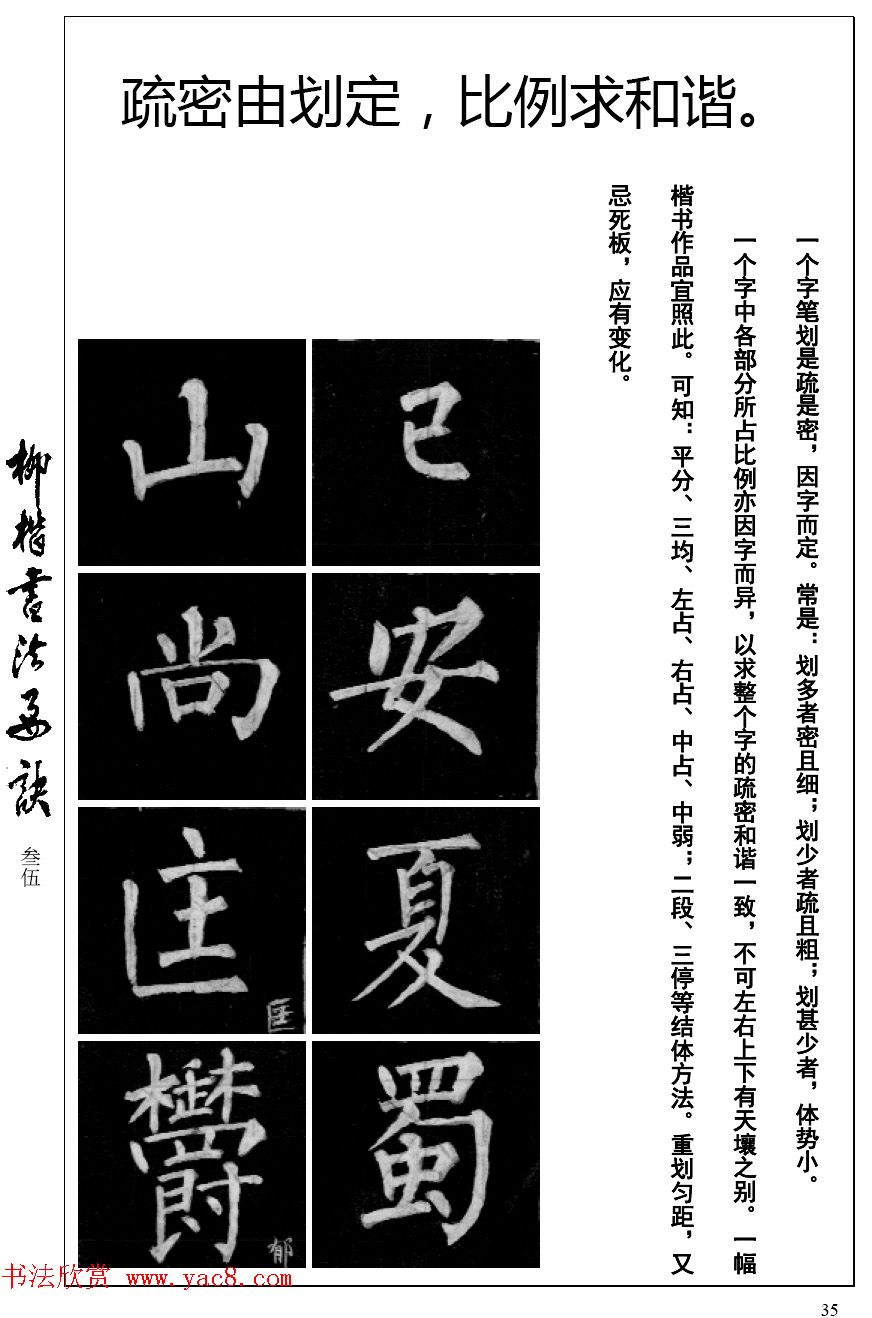 疏密由划定，比例求和谐。
一个字笔划是疏是密，因字而定。常是：划多者密且细；划少者疏且粗；划甚少者，体势小。
一个字中各部分所占比例亦因字而异，以求整个字的疏密和谐一致，不可左右上下有天壤之别。一幅
楷书作品宜照此。可知：平分、三均、左占、右占、中占、中弱；二段、三停等结体方法。重划匀距，又
忌死板，应有变化。
已
安
夏
蜀
山
尚
匡
匡
郁
柳楷書法要訣
叁伍
书法欣赏 www.yac8.com
35